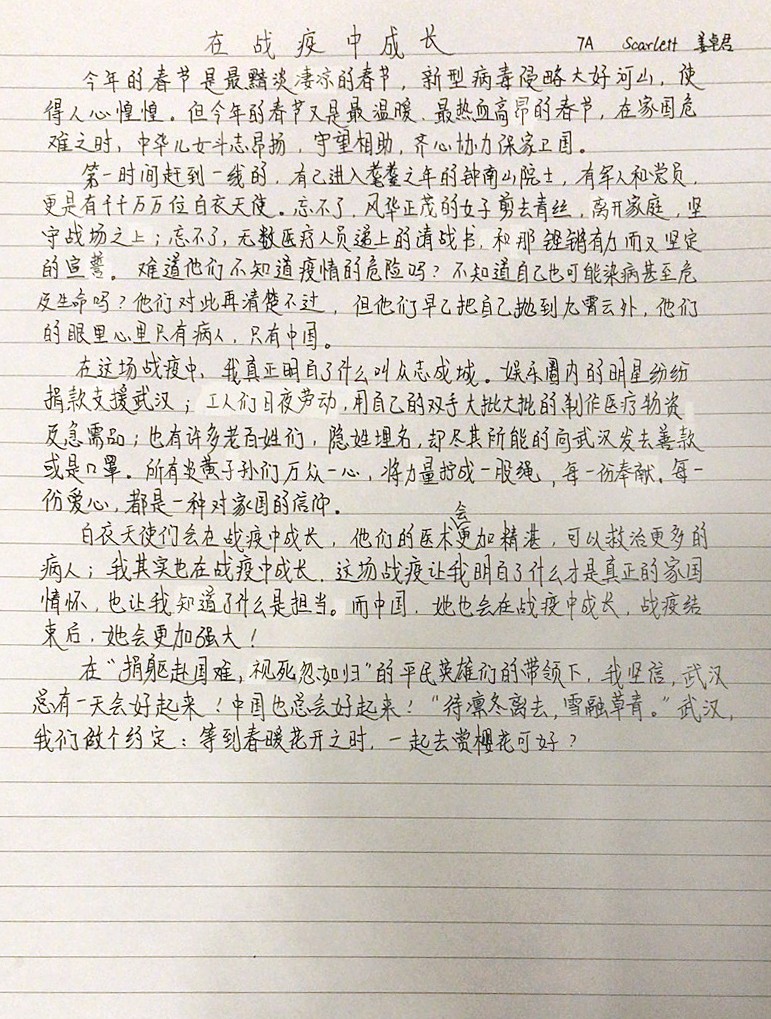 在战疫中成长 7A Scarlett 姜卓君
今年的春节是最黯淡凄凉的春节，新型病毒侵略大好河山，使
得人心惶惶。但今年的春节又是最温暖、最热血高昂的春节，在家国危
难之时，中华儿女斗志昂扬，守望相助，齐心协力保家卫国。
第一时间赶到一线的，有已进入耄耋之年的钟南山院士，有军人和党员，
更是有千千万万位白衣天使。忘不了，风华正茂的女子剪去青丝，离开家庭，坚
守战场之上；忘不了，无数医疗人员递上的请战书，和那铿锵有力而又坚定
的宣誓。难道他们不知道疫情的危险吗？不知道自己也可能染病甚至危
及生命吗？他们对此再清楚不过，但他们早已把自己抛到九霄云外，他们
的眼里心里只有病人，只有中国。
在这场战疫中，我真正明白了什么叫众志成城。娱乐圈内的明星纷纷
捐款支援武汉；工人们日夜劳动，用自己的双手大批大批的制作医疗物资
及急需品；也有许多老百姓们，隐姓埋名，却尽其所能的向武汉发去善款
或是口罩。所有炎黄子孙们万众一心，将力量拧成一股绳，每一份奉献、每一
份爱心，都是一种对家国的信仰。
白衣天使们会在战疫中成长，他们的医术会更加精湛，可以救治更多的
病人；我其实也在战疫中成长，这场战疫让我明白了什么才是真正的家国
情怀，也让我知道了什么是担当。而中国，她也会在战疫中成长，战疫结
束后，她会更加强大！
在“捐躯赴国难，视死忽如归”的平民英雄们的带领下，我坚信，武汉
总有一天会好起来！中国也总会好起来！“待凛冬离去，雪融草青。”武汉，
我们做个约定：等到春暖花开之时，一起去赏樱花可好？